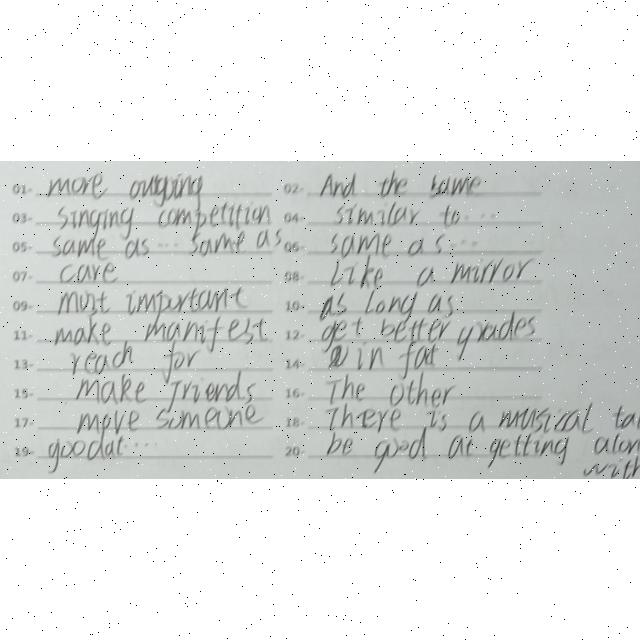 01. more outgoing
02. And the same
03. singing competition
04. similar to...
05. same as... same as
06. same as...
07. care
08. Like a mirror
09. most important
10. as long as
11. make manifest
12. get better grades
13. reach for
14. in fat
15. make friends
16. The other
17. move someone
18. There is a musical ta
19. goodat...
20. be good at getting alon
with